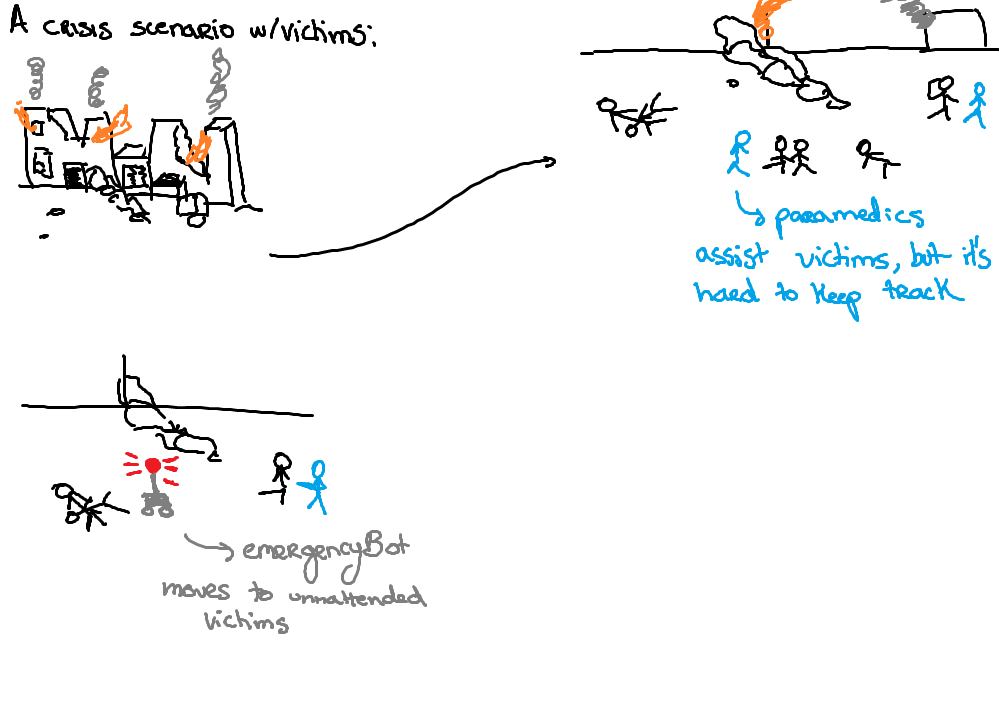 A crisis scenario w/victims:
paramedics
assist victims, but it's
hard to keep track
emergencyBot
moves to unnattended
victims